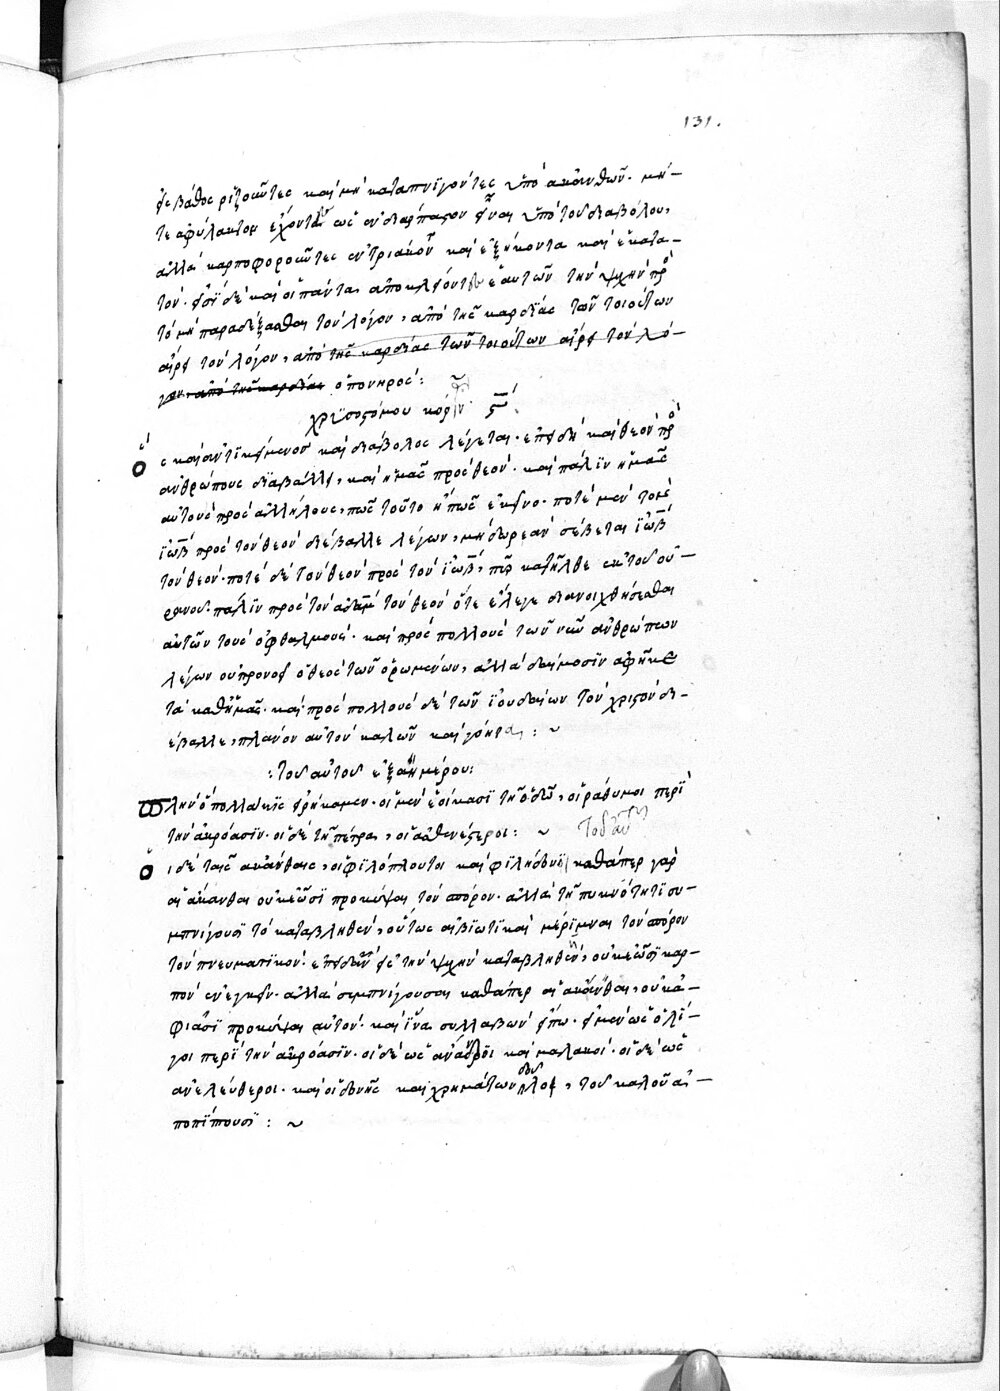 131.
εἰς βάθος ριζοῦντες καὶ μὴ καταπνιγόντες ὑπὸ ἀκανθῶν. μή-
τε ἀφύλακτον ἔχοντες ὡς εὐδιάρπαστον εἶναι ὑπὸ τοῦ διαβόλου,
ἀλλὰ καρποφοροῦντες ἐν τριάκοντα καὶ ἑξήκοντα καὶ ἑκατα-
τόν. εἰσὶ δὲ καὶ οἱ πάντα ἀποκλείοντες ἑαυτῶν τὴν ψυχὴν πρὸς
τὸ μὴ παραδέξασθαι τὸν λόγον, ἀπὸ τῆς καρδίας τῶν τοιούτων
αἴρει τὸν λόγον, ἀπὸ τῆς καρδίας τῶν τοιούτων αἴρει τὸν λό-
γον, ἀπὸ τῆς καρδίας ὁ πονηρός:
χρϊσοστόμου κορ
ὃς καὶ ἀντϊκείμενος καὶ διάβολος λέγεται. ἐπειδὴ καὶ θεὸν πρὸς
ἀνθρώπους διαβάλλει, καὶ ἡμᾶς πρὸς θεόν. καὶ πάλϊν ἡμᾶς
αὐτοὺς πρὸς ἀλλήλους, πῶς τοῦτο ἢ πῶς ἐκεῖνο. ποτὲ μὲν τὸν
ἰὼβ πρὸς τὸν θεὸν διέβαλλε λέγων, μὴ δωρεὰν σέβεται ἰὼβ
τὸν θεόν. ποτὲ δὲ τὸν θεὸν πρὸς τὸν ἰὼβ, πῦρ κατῆλθε ἐκ τοῦ οὐ-
ρανοῦ πάλϊν πρὸς τὸν ἀδὰμ τὸν θεὸν ὅτε ἔλεγε διανοιχθήσεσθαι
αὐτῶν τοὺς ὀφθαλμούς. καὶ πρὸς πολλοὺς τῶν νῦν ἀνθρώπων
λέγων οὐ προνοεῖ ὁ θεὸς τῶν ὁρωμένων, ἀλλὰ δαίμοσϊν ἀφῆκε
τὰ καθ' ἡμᾶς. καὶ πρὸς πολλοὺς δὲ τῶν ἰουδαίων τὸν χριστὸν δι-
έβαλλε, πλάνον αὐτὸν καλῶν καὶ γόητα: ~
:Τοῦ αὐτοῦ ἑξαημέρου:
Πλὴν ὃ πολλάκϊς εἰρήκαμεν. οἱ μὲν ἐοίκασϊ τῇ ὁδῷ, οἱ ράθυμοι περὶ
τὴν ἀκρόασϊν. οἱ δὲ τῇ πέτρᾳ, οἱ ἀσθενέστεροι: ~ Τοῦ αὐτοῦ
οἱ δὲ ταῖς ἀκάνθαις, οἱ φϊλόπλουτοι καὶ φϊλήδονοϊ καθάπερ γὰρ
αἱ ἄκανθαι οὐκ ἐῶσϊ προκόψαι τὸν σπόρον. ἀλλὰ τῇ πυκνότητϊ συ-
μπνίγουσϊ τὸ καταβληθὲν, οὕτως αἱ βϊωτϊκαὶ μέρϊμναι τὸν σπόρον
τὸν πνευματϊκόν. ἐπειδὰν εἰς τὴν ψυχὴν καταβληθῇ, οὐκ ἐῶσϊ καρ-
πὸν ἐνεγκεῖν. ἀλλὰ συμπνίγουσαι καθάπερ αἱ ἄκανθαι, οὐκ ἀ-
φιᾶσϊ προκόψαι αὐτόν. καὶ ἵνα συλλαβὼν εἴπω. εἰ μὲν ὡς ὀλί-
γοι περὶ τὴν ἀκρόασϊν. οἱ δὲ ὡς ἄνανδροϊ καὶ μαλακοί. οἱ δὲ ὡς
ἀνελεύθεροι. καὶ οἱ ἡδονῆς καὶ χρημάτων δοῦλοι, τοῦ καλοῦ ἀ-
ποπϊπτουσϊ: ~